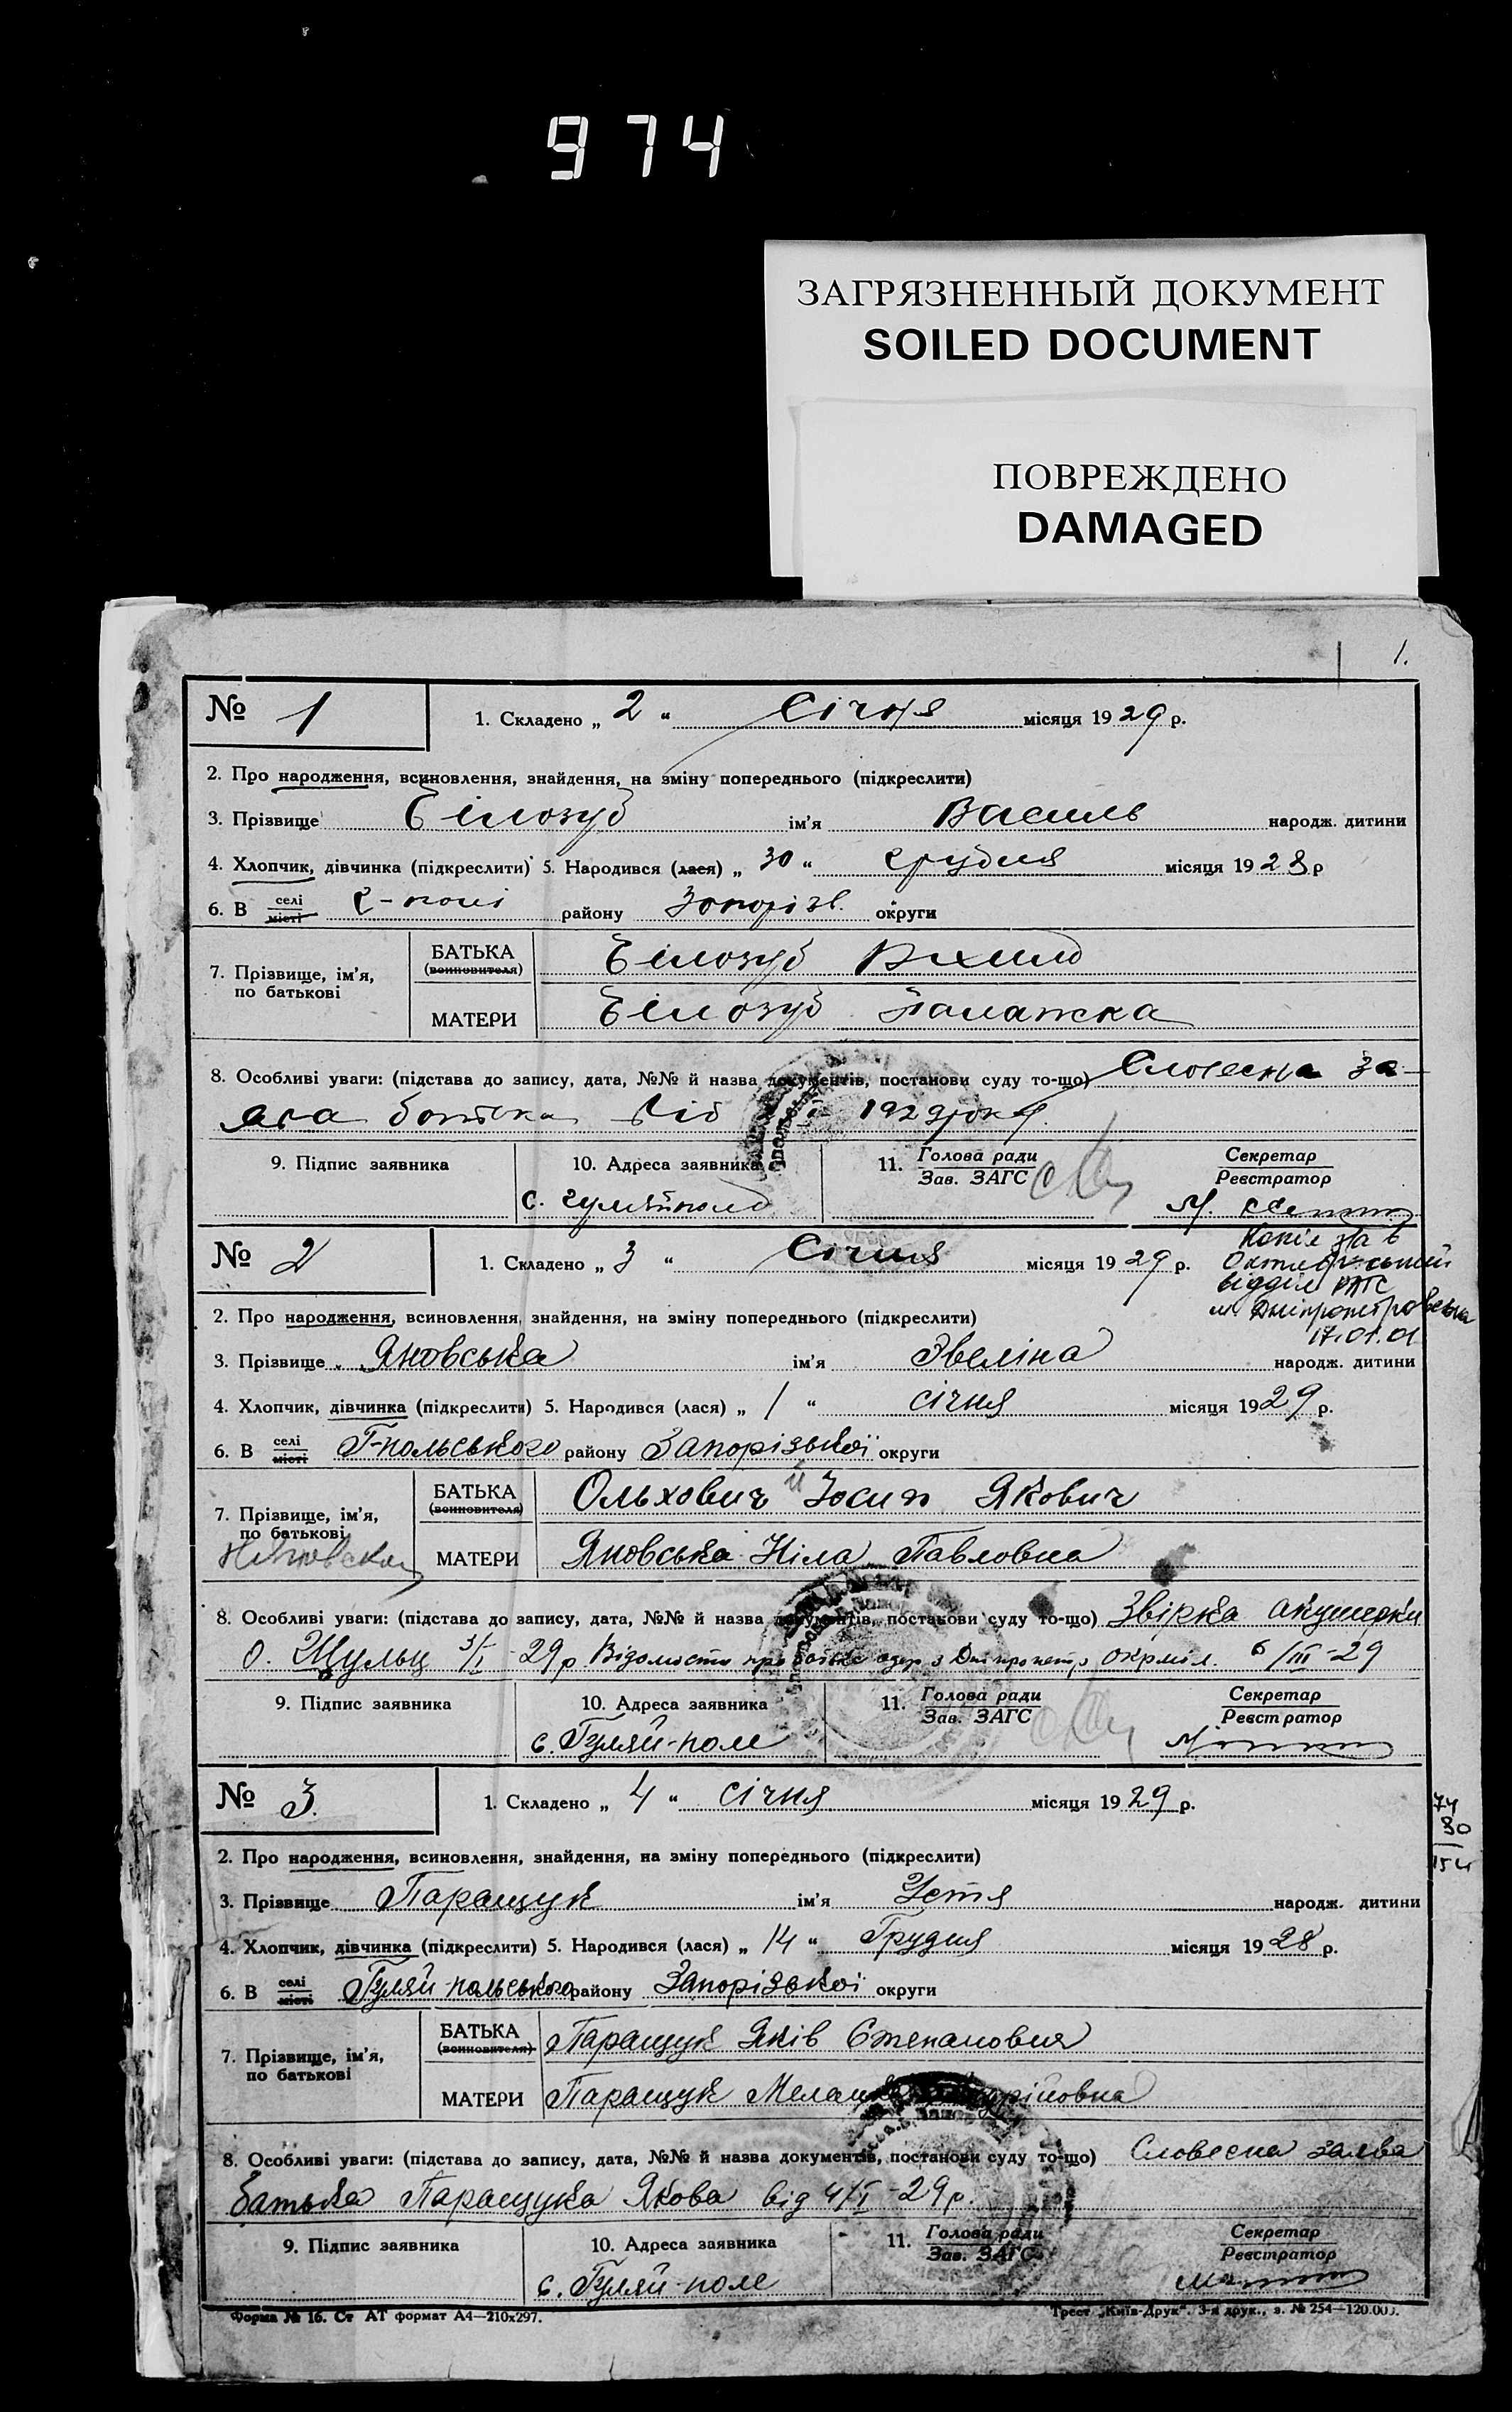 974
ЗАГРЯЗНЕННЫЙ ДОКУМЕНТ
SOILED DOCUMENT
ПОВРЕЖДЕНО
DAMAGED
1.
№ 1 1. Складено „ 2 “ Січня місяця 1929 р.
2. Про народження, всиновлення, знайдення, на зміну попереднього (підкреслити)
3. Прізвище Білозуб ім'я Василь народж. дитини
4. Хлопчик, дівчинка (підкреслити) 5. Народився (лася) „ 30 “ грудня місяця 1928 р
6. В селі місті Г-полі району Запорізь. округи
7. Прізвище, ім'я, по батькові
БАТЬКА (всиновителя) Білозуб
МАТЕРИ Білозуб Палажка
8. Особливі уваги: (підстава до запису, дата, №№ й назва документів, постанови суду то-що) Словесна за-
ява батька від 1929 року
9. Підпис заявника 10. Адреса заявника 11. Голова ради Зав. ЗАГС Секретар Реєстратор
с. Гуляйполе
№ 2 1. Складено „ 3 “ Січня місяця 1929 р.
Копія
Октябрський
відділ РАГС
м. Дніпропетровська
17.01.01
2. Про народження, всиновлення, знайдення, на зміну попереднього (підкреслити)
3. Прізвище Яновська ім'я Эвеліна народж. дитини
4. Хлопчик, дівчинка (підкреслити) 5. Народився (лася) „ 1 “ січня місяця 1929 р.
6. В селі місті Г-польського району Запорізької округи
7. Прізвище, ім'я, по батькові
БАТЬКА (всиновителя) Ольхович Йосип Якович
МАТЕРИ Яновська Ніла Павловна
8. Особливі уваги: (підстава до запису, дата, №№ й назва документів, постанови суду то-що) Звірка акушерки
о. Щульц 3/I-29 р. Відомости про батька одер з Дніпропетр. окрміл. 6/III-29
9. Підпис заявника 10. Адреса заявника 11. Голова ради Зав. ЗАГС Секретар Реєстратор
с. Гуляй-поле
№ 3. 1. Складено „ 4 “ січня місяця 1929 р.
74
80
154
2. Про народження, всиновлення, знайдення, на зміну попереднього (підкреслити)
3. Прізвище Паращук ім'я Устя народж. дитини
4. Хлопчик, дівчинка (підкреслити) 5. Народився (лася) „ 14 “ Грудня місяця 1928 р.
6. В селі місті Гуляй-польського району Запорізької округи
7. Прізвище, ім'я, по батькові
БАТЬКА (всиновителя) Паращук Яків Степанович
МАТЕРИ Паращук
8. Особливі уваги: (підстава до запису, дата, №№ й назва документів, постанови суду то-що) Словесна заява
батька Паращука Якова від 4/I-29 р.
9. Підпис заявника 10. Адреса заявника 11. Голова ради Зав. ЗАГС Секретар Реєстратор
с. Гуляй-поле
Форма № 16. Ст АТ формат А4—210х297. Трест „Київ-Друк“. 3-я друк., з. № 254—120.000.